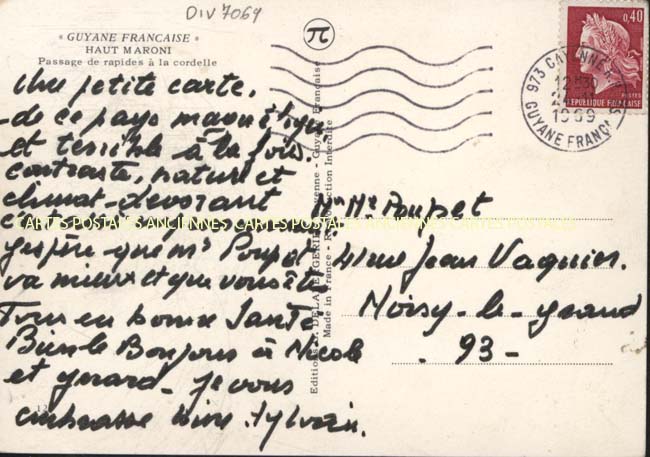 DIV 7069
" GUYANE FRANCAISE "
HAUT MARONI
Passage de rapides à la cordelle
Une petite carte,
de ce pays magnifique
et terrible à la fois.
contraste, nature et
climat - dévorant
j'espère que Mr Poupet
va mieux et que vous êtes
Tous en bonne Santé
Bien le Bonjour à Nicole
et gerard - je vous
embrasse bien. Sylvain.
CARTES POSTALES ANCIENNES CARTES POSTALES ANCIENNES CARTES POSTALES
Editions DELABERGERIE Cayenne - Guyane Française
Made in France - Reproduction Interdite
π
0,40
POSTES
REPUBLIQUE FRANCAISE
973 CAYENNE
12H
1969
GUYANE FRANC
Mr Poupet
41 rue Jean Vaquier.
Noisy-le-grand
- 93 -